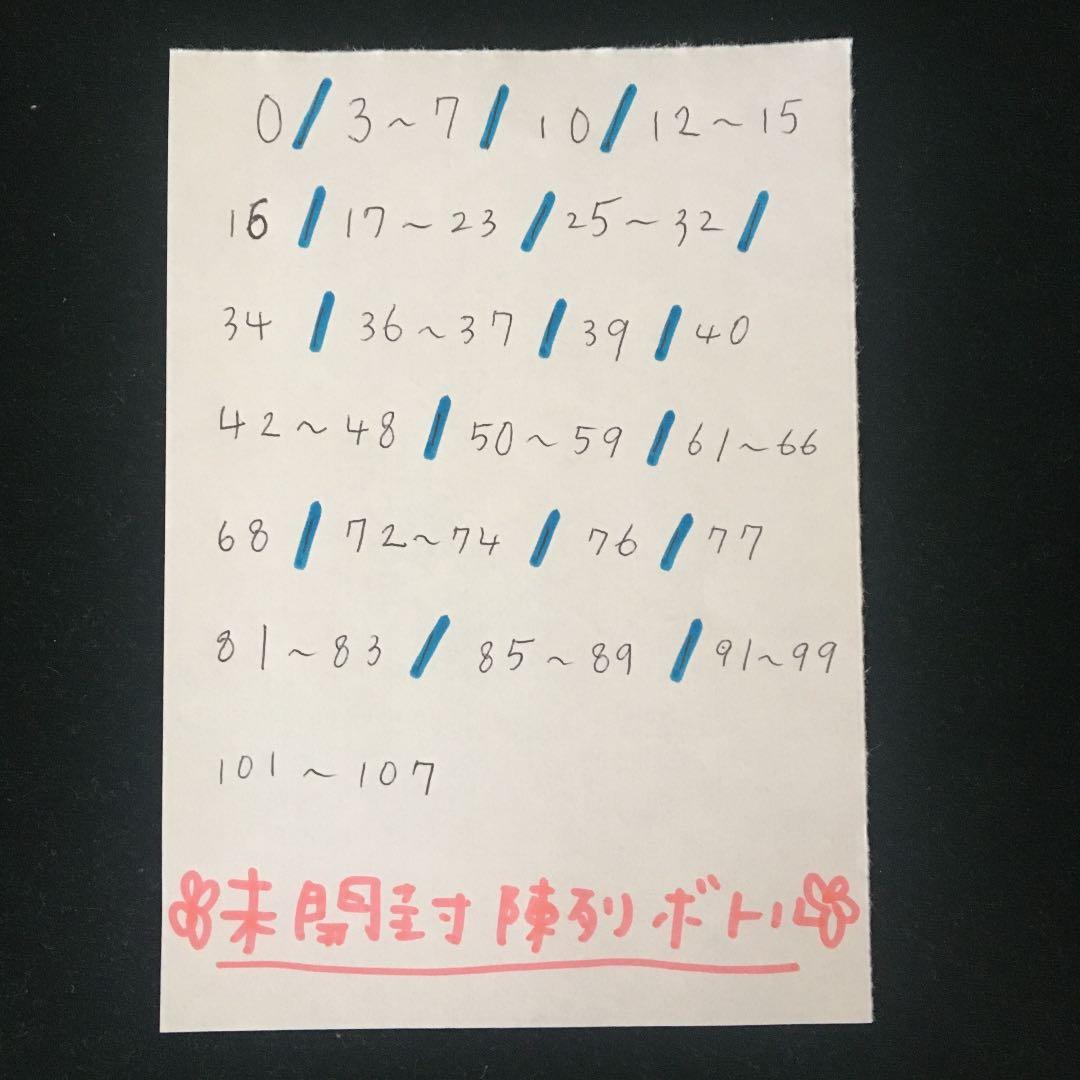 0/3~7/10/12~15
16/17~23/25~32/
34/36~37/39/40
42~48/50~59/61~66
68/72~74/76/77
81~83/85~89/91~99
101~107
未開封陳列ボトル